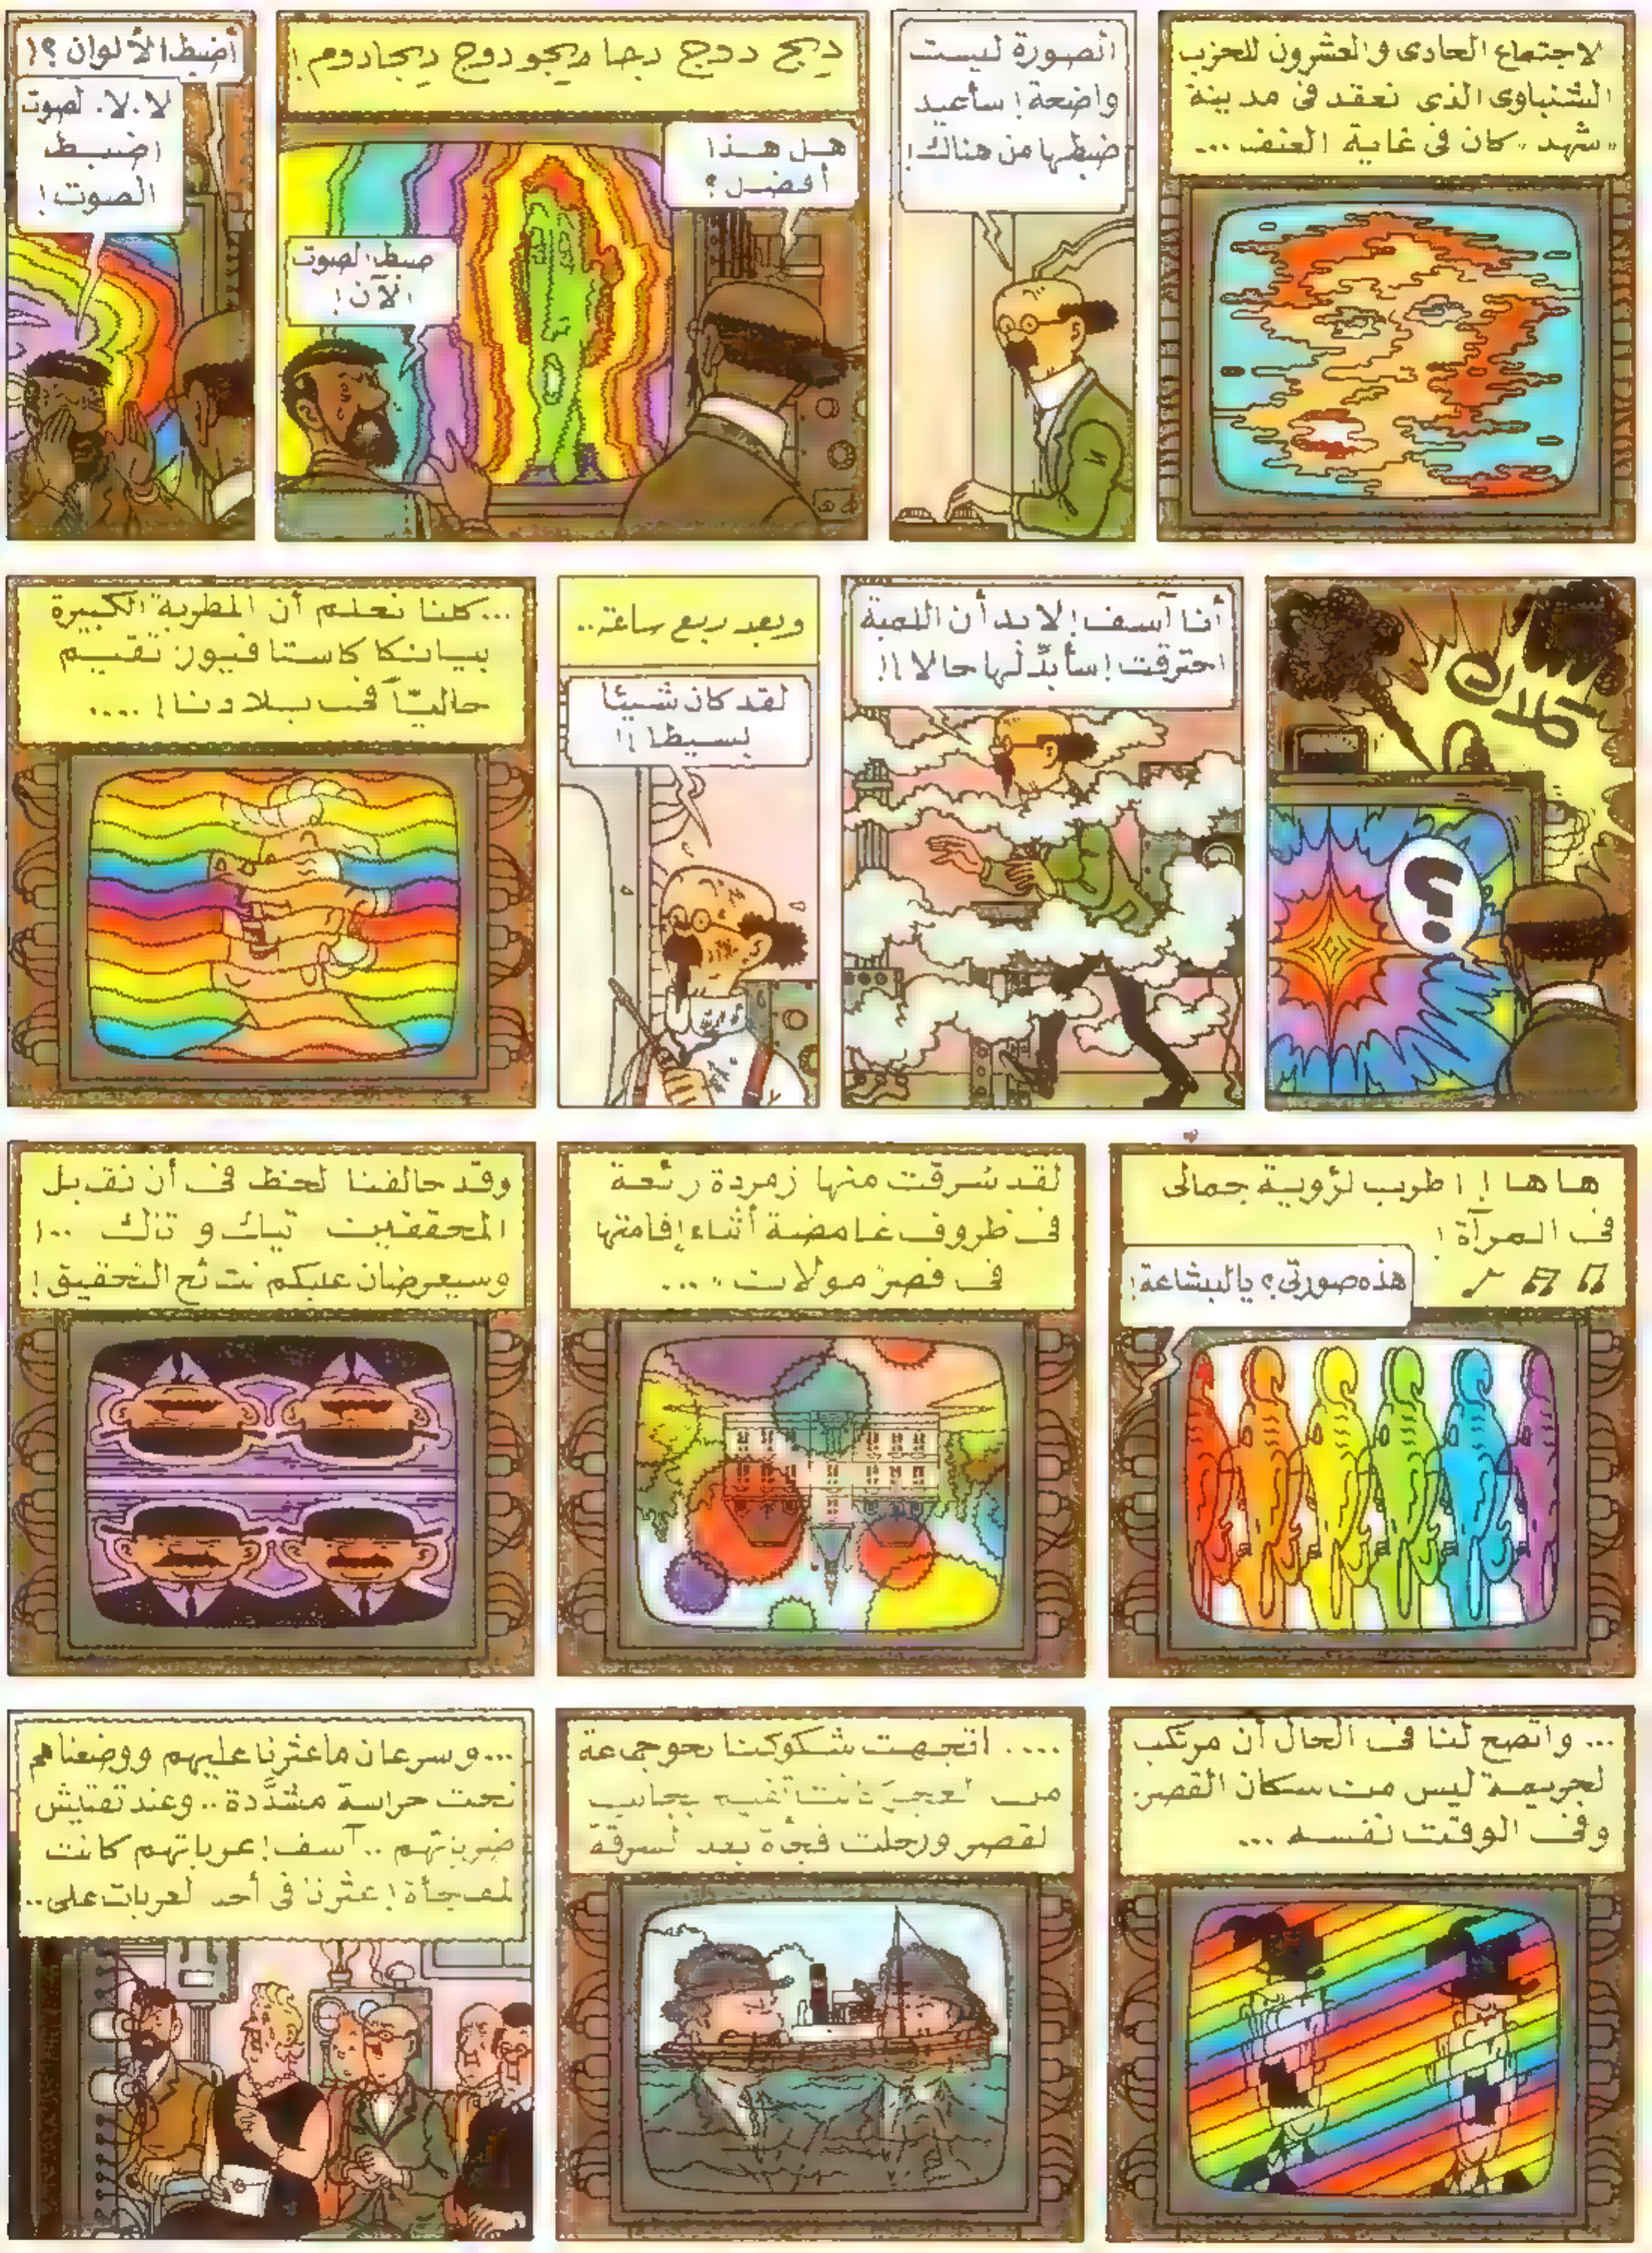 لاجتماع الحادى والعشرون للحزب
الشنباوى الذى نعقد فى مدينة
"شهد" كان فى غاية العنف...
الصورة ليست
واضحة! سأعيد
ضبطها من هناك!
ديج دوج دجا ديجودوج ديجادوم!
هل هذا
أفضل؟
ضبط الصوت
الآن!
أضبط الألوان؟!
لا.لا. لصوت
اضبط
الصوت!
أنا آسف! لابد أن اللمبة
احترقت! سأبدِّلها حالا!!
وبعد ربع ساعة..
لقد كان شيئا
بسيطا!!
...كلنا نعلم أن المطربة الكبيرة
بيانكا كاستافيور تقيم
حاليّاً فى بلادنا!....
هاها! اطرب لرؤية جمالى
فى المرآة!
هذه صورتى؟ يالبشاعة!
لقد سُرقت منها زمردة رئعة
فى ظروف غامضة أثناء إقامتها
فى قصر مولانت"...
وقد حالفنا لحظ فى أن نقبل
المحققين تيك و تاك ..!
وسيعرضان عليكم نتئج التحقيق!
... واتضح لنا فى الحال أن مرتكب
لجريمة ليس من سكان القصر.
وفى الوقت نفسه ...
.... اتجهت شكوكنا نحو جمعة
من لغجر تقيم بجانب
لقصر ورحلت فجأة بعد لسرقة
...وسرعان ماعثرنا عليهم ووضعناهم
تحت حراسة مشدَّدة.. وعند تفتيش
.. آسف! عرباتهم كانت
لمفجأة! عثرنا فى أحد لعربات على..